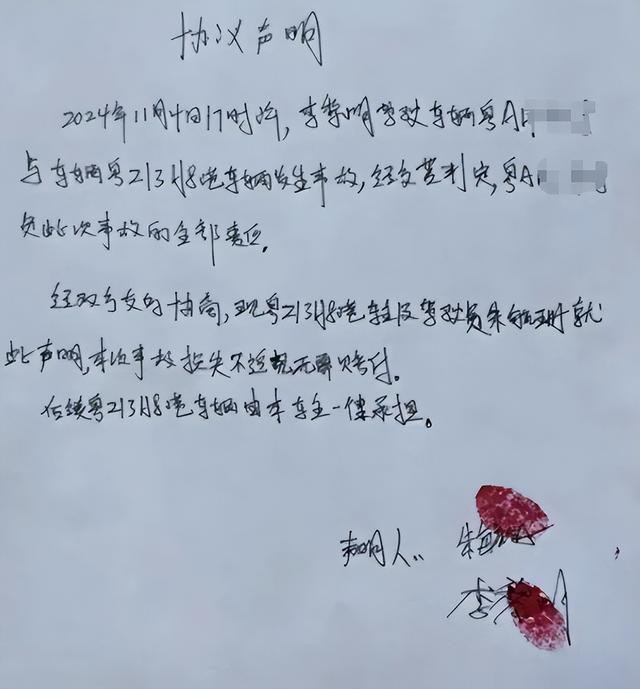 协议声明
2024年11月4日17时许，李黎明驾驶车辆粤A
与车辆粤Z13H8港车辆发生事故，经交警判定，粤A
负此次事故的全部责任。
经双方友的协商，现粤Z13H8港车主及驾驶员朱就
此声明，本次事故损失不追究无需赔付。
后续粤Z13H8港车辆由本车主一律承担。
声明人：朱
李黎明